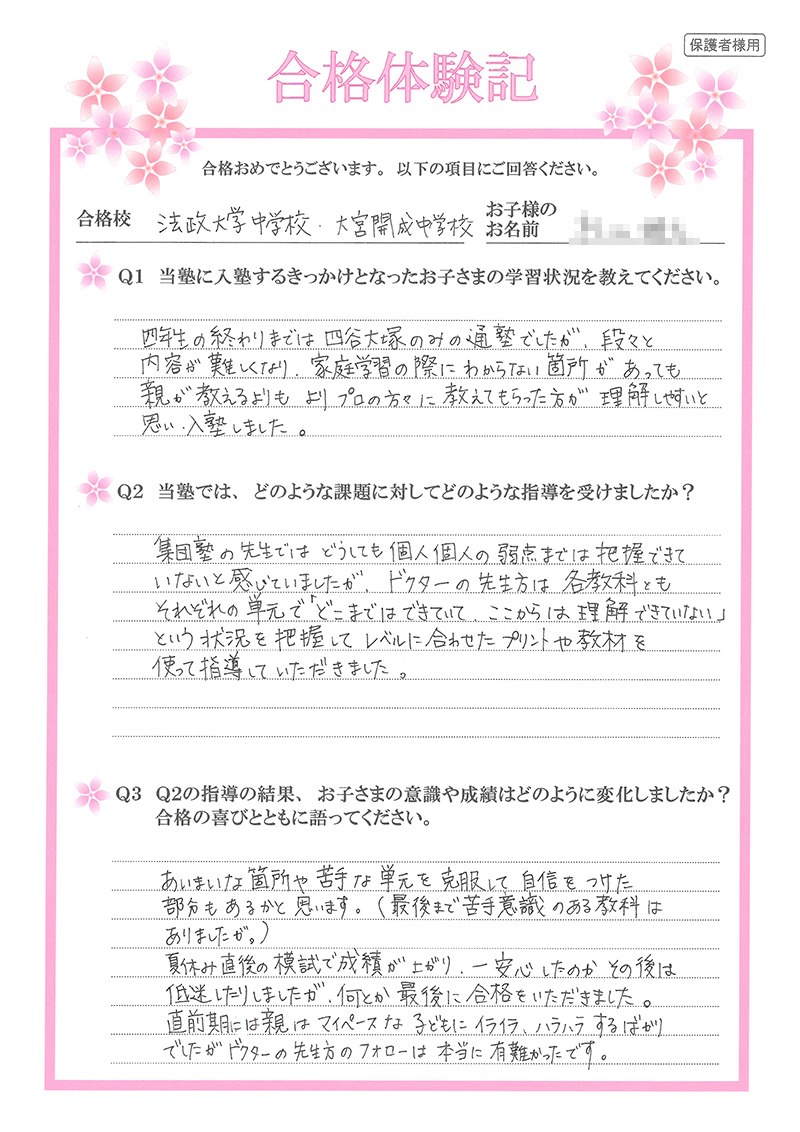 保護者様用
合格体験記
合格おめでとうございます。以下の項目にご回答ください。
合格校 法政大学中学校・大宮開成中学校 お子様の
お名前
Q1 当塾に入塾するきっかけとなったお子さまの学習状況を教えてください。
四年生の終わりまでは四谷大塚のみの通塾でしたが、段々と
内容が難しくなり、家庭学習の際にわからない箇所があっても
親が教えるよりもよりプロの方々に教えてもらった方が理解しやすいと
思い、入塾しました。
Q2 当塾では、どのような課題に対してどのような指導を受けましたか?
集団塾の先生ではどうしても個人個人の弱点までは把握できて
いないと感じていましたが、ドクターの先生方は各教科とも
それぞれの単元で「どこまではできていて、ここからは理解できていない」
という状況を把握してレベルに合わせたプリントや教材を
使って指導していただきました。
Q3 Q2の指導の結果、お子さまの意識や成績はどのように変化しましたか?
合格の喜びとともに語ってください。
あいまいな箇所や苦手な単元を克服して自信をつけた
部分もあるかと思います。(最後まで苦手意識のある教科は
ありましたが。)
夏休み直後の模試で成績が上がり、一安心したのかその後は
低迷したりしましたが、何とか最後に合格をいただきました。
直前期には親はマイペースな子どもにイライラ、ハラハラするばかり
でしたがドクターの先生方のフォローは本当に有難かったです。